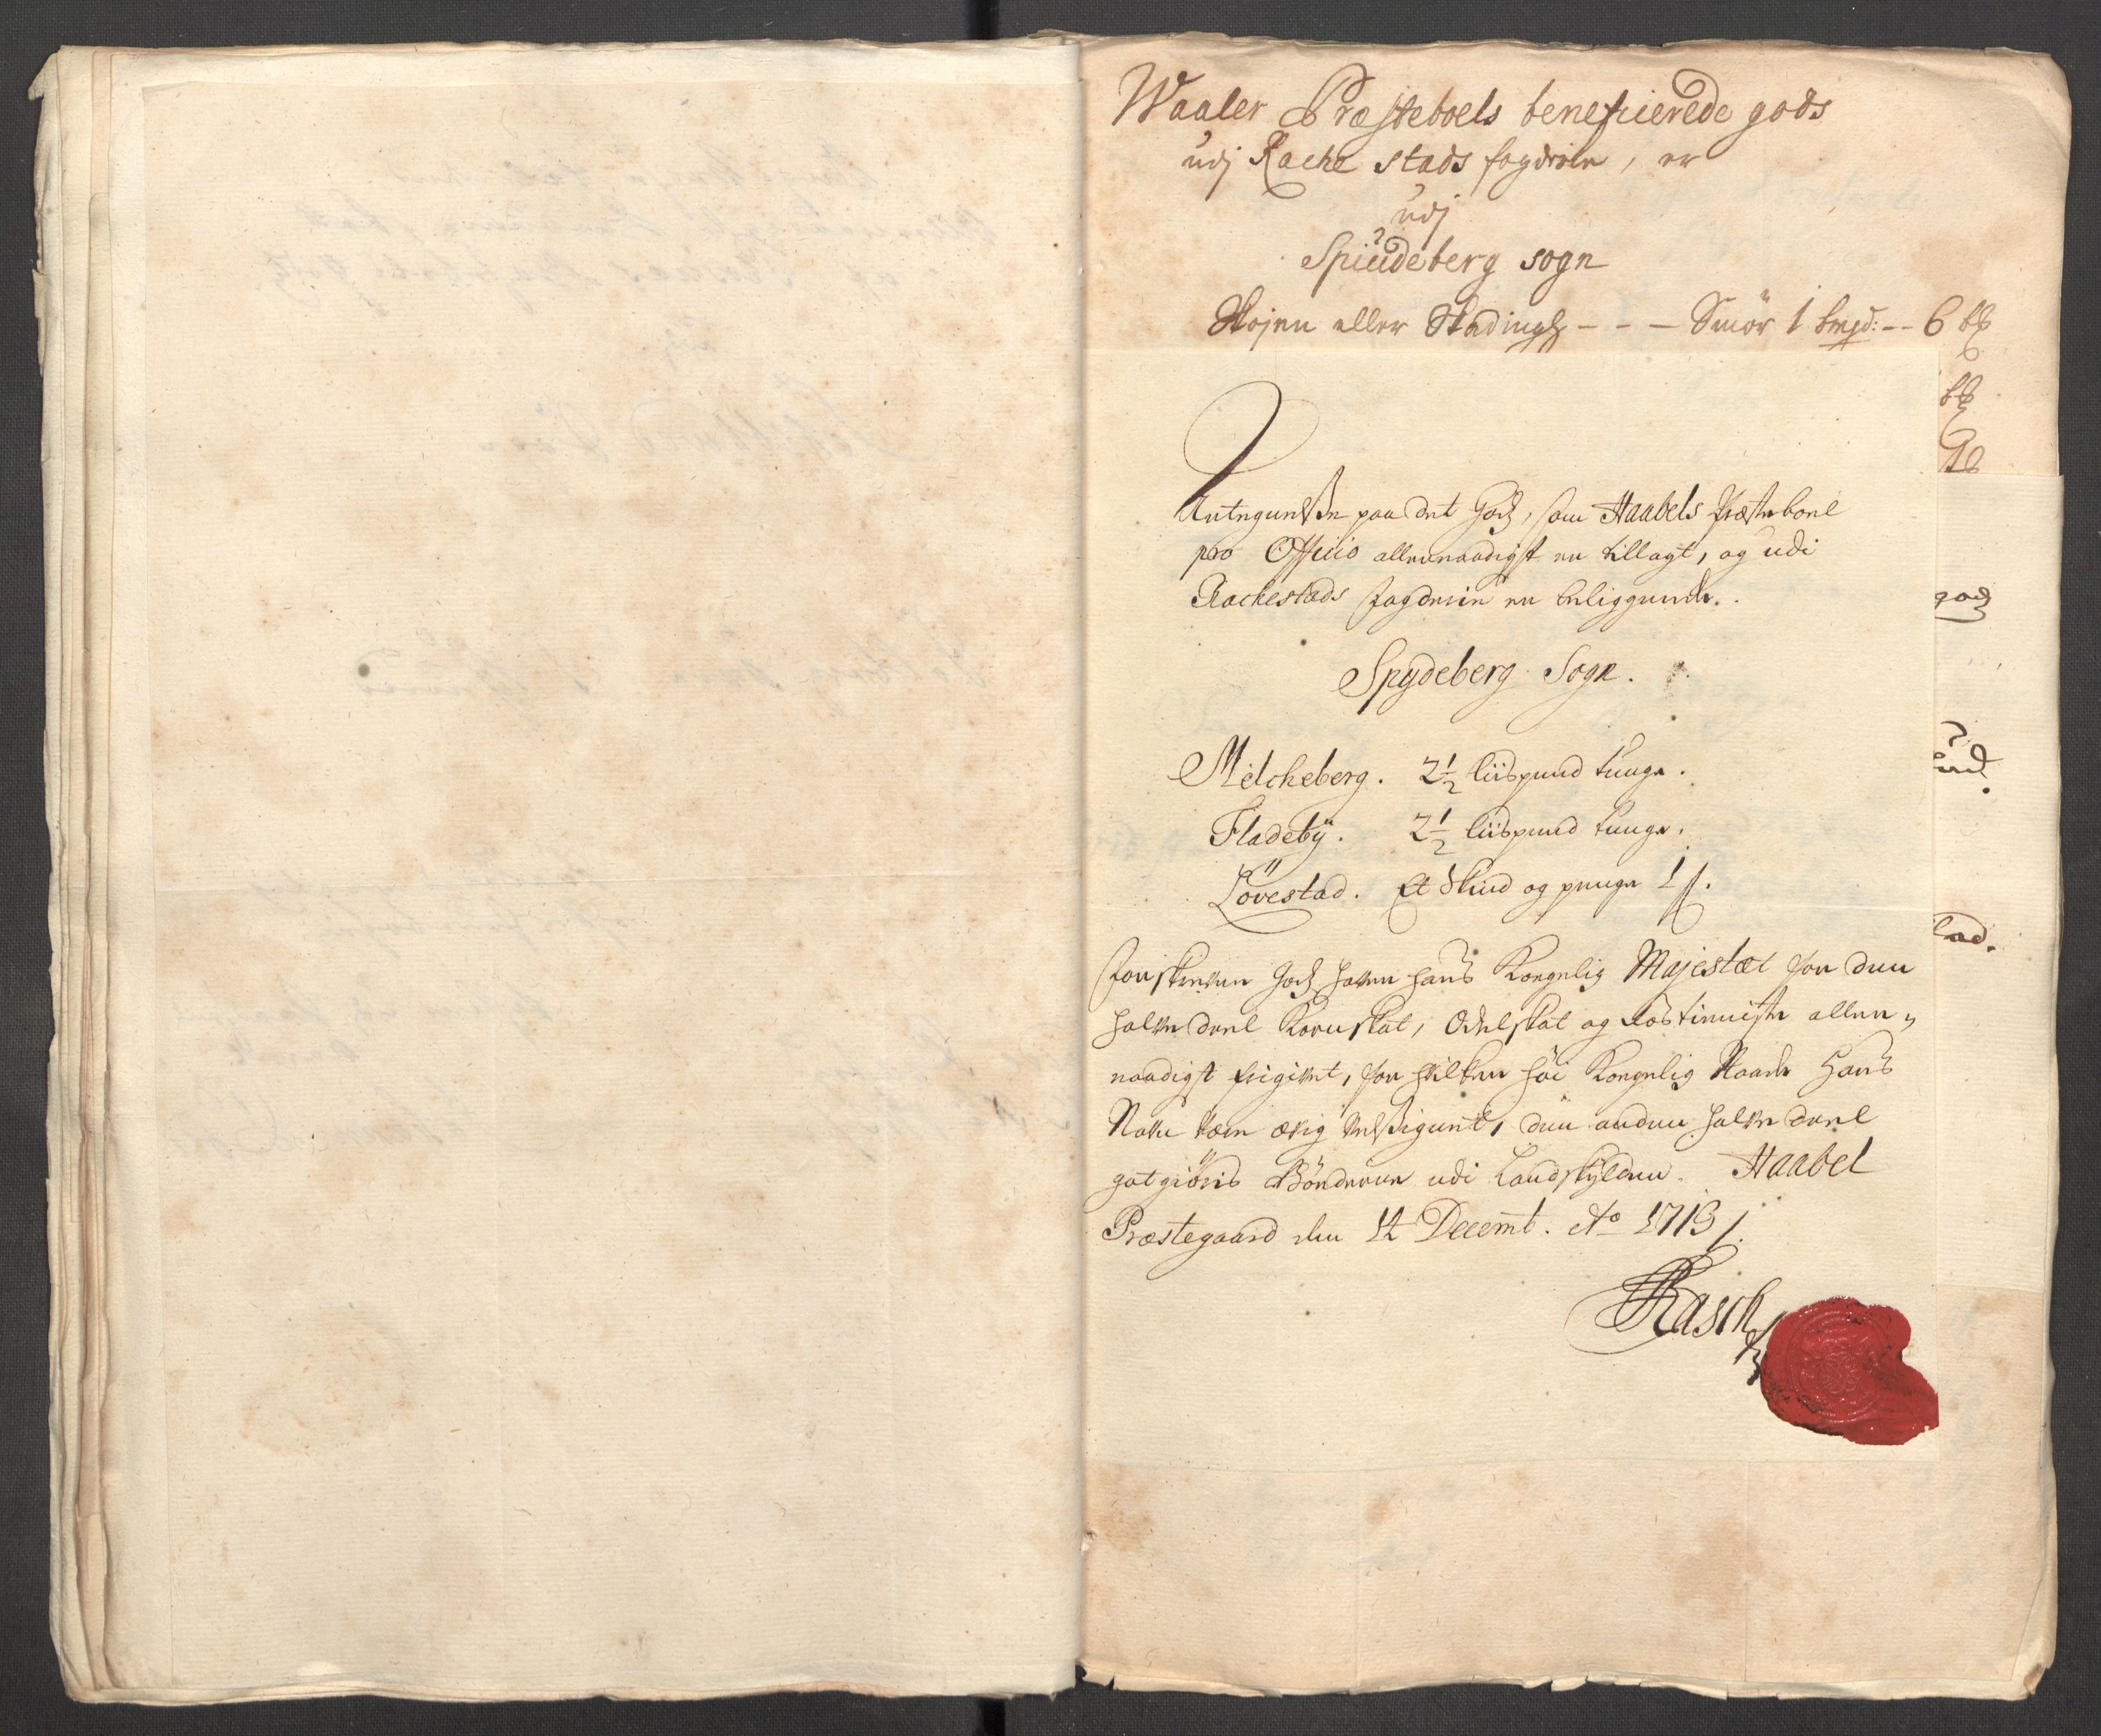 Waaler Præsteboels beneficierede gods
udj Rachestads fogderie, er
udj
Spiüdeberg sogn
Skojen eller Skadingh - - - Smör 1 bmpd: - - 6 bß
bß
Antegnelse paa det Godz, som Haabels Præsteboel
pro Officio allernaadigst er tillagt, og udi
Rachestads Fogderie er beliggende.
Spydeberg Sogn.
Melcheberg. 2½ liispund tunge.
Fladebÿ. 2½ liispund tunge.
Lövestad. Et Skind og penge 1 ß.
Forskreven Godz haver hans Kongelig Majestæt for den
halve deel Kornskat, Odelskat og Rostieniste aller„
naadigst frigivet, for hvilken høi Kongelig Naade Hans
Navn være ævig velsignet, den anden halve deel
gotgiöris Bönderne udi Landskÿlden. Haabel
Præstegaard den 12 Decemb. Ao 1713.
Rasch
godz
lad.